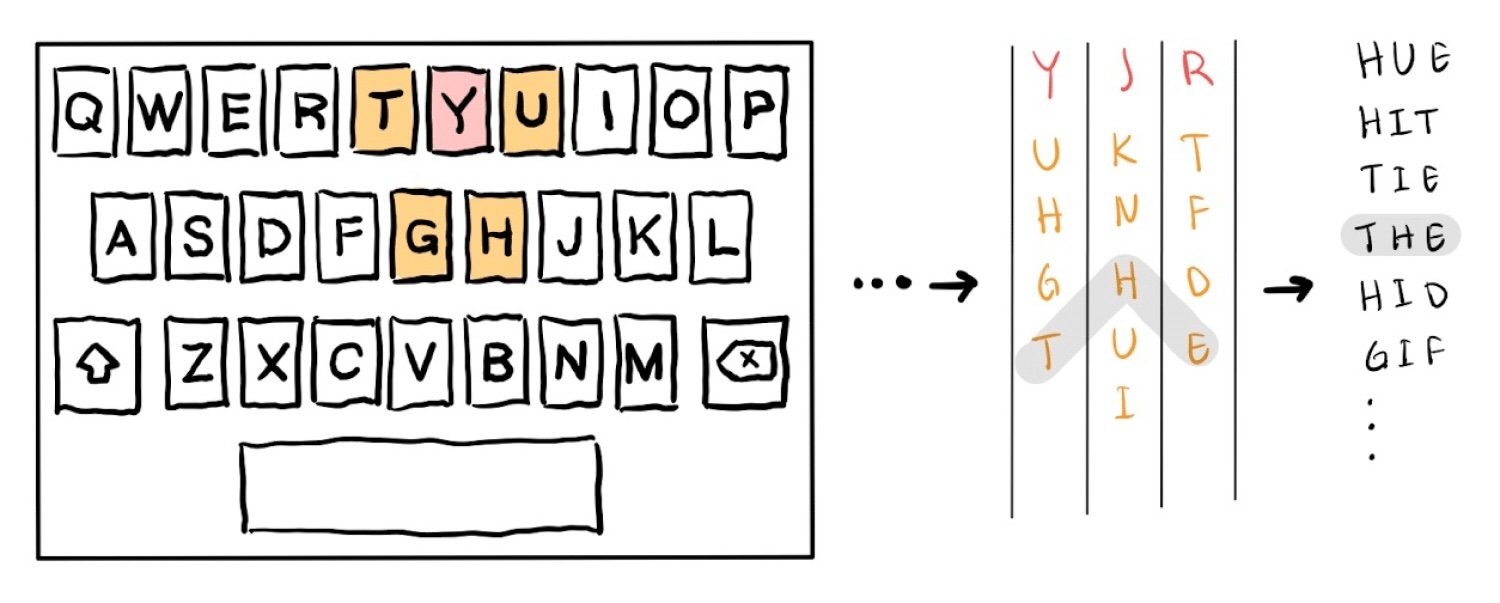 Q W E R T Y U I O P
A S D F G H J K L
Z X C V B N M X
Y J R
U K T
H N F
G H D
T U E
I
HUE
HIT
TIE
THE
HID
GIF